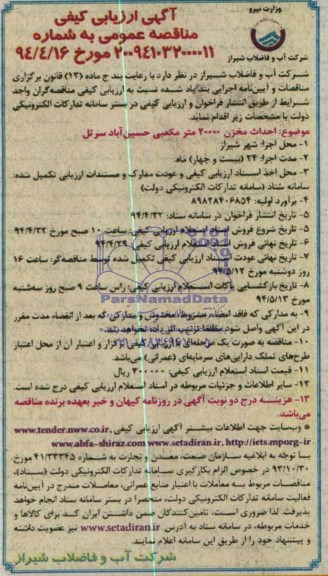 وزارت نیرو
شرکت آب و فاضلاب شیراز
آگهی ارزیابی کیفی
مناقصه عمومی به شماره
۲۰۰۹۴۱۰۳۲۰۰۰۰۱۱ مورخ ۹۴/۴/۱۶
شرکت آب و فاضلاب شیراز در نظر دارد با رعایت بند ج ماده (۱۲) قانون برگزاری
مناقصات و آیین‌نامه اجرایی بند یاد شده نسبت به ارزیابی کیفی مناقصه‌گران واجد
شرایط از طریق انتشار فراخوان و ارزیابی کیفی در بستر سامانه تدارکات الکترونیکی
دولت با مشخصات زیر اقدام نماید.
موضوع: احداث مخزن ۲۰۰۰۰ متر مکعبی حسین‌آباد سرتل
۱- محل اجرا: شهر شیراز
۲- مدت اجرا: ۲۴ (بیست و چهار) ماه.
۳- محل اخذ اسناد ارزیابی کیفی و عودت مدارک و مستندات ارزیابی تکمیل شده:
سامانه ستاد (سامانه تدارکات الکترونیکی دولت)
۴- برآورد اولیه: ۸۹۸۲۸۴۰۶۸۵۴
۵- تاریخ انتشار فراخوان در سامانه ستاد: ۹۴/۴/۲۲
۶- تاریخ شروع فروش اسناد استعلام ارزیابی کیفی: ساعت ۱۰ صبح مورخ ۹۴/۴/۲۲
۷- تاریخ نهائی فروش اسناد استعلام ارزیابی کیفی: ۹۴/۴/۲۹
۷- تاریخ نهائی عودت اسناد ارزیابی کیفی تکمیل شده توسط مناقصه‌گر: ساعت ۱۶
روز دوشنبه مورخ ۹۴/۵/۱۲
۸- تاریخ بازگشایی پاکات استعلام ارزیابی کیفی: راس ساعت ۹ صبح روز سه‌شنبه
مورخ ۹۴/۵/۱۳
۹- به مدارکی که فاقد امضاء، مشروط، مخدوش و مدارکی که بعد از انقضاء مدت مقرر
در این آگهی واصل شود مطلقا ترتیب اثر داده نخواهد شد.
۱۰- مناقصه به صورت یک مرحله‌ای برگزار و اعتبار آن از محل اعتبار
طرح‌های تملک دارایی‌های سرمایه‌ای (عمرانی) می‌باشد.
۱۱- قیمت اسناد استعلام ارزیابی کیفی: ۳۰۰۰۰۰ ریال
۱۲- سایر اطلاعات و جزئیات مربوطه در اسناد استعلام ارزیابی کیفی درج شده است.
۱۳- هزینه درج دو نوبت آگهی در روزنامه کیهان و خبر بعهده برنده مناقصه
می‌باشد.
وب‌سایت جهت اطلاعات بیشتر آگهی ارزیابی کیفی www.tender.nww.co.ir
www.abfa-shiraz.com www.setadiran.ir, http://iets.mporg-ir
با توجه به ابلاغیه سازمان صنعت، معدن و تجارت به شماره ۴۱/۳۳۳۴۵ مورخ
۹۳/۱۰/۳۰ در خصوص الزام بکارگیری سامانه تدارکات الکترونیکی دولت (ستاد)،
مناقصات مربوط به معاملات با اعتبار منابع عمرانی، معاملات مندرج در آیین‌نامه
فعالیت سامانه تدارکات الکترونیکی دولت، منحصرا در بستر سامانه ستاد انجام خواهد
پذیرفت. لذا ضروری است، تامین‌کنندگان ضمن داشتن ایران کد برای کالاها و
خدمات مربوطه، در سامانه ستاد به آدرس www.setadiran.ir نیز عضویت داشته
و پیشنهاد خود را از طریق این سامانه اعلام نمایند.
شرکت آب و فاضلاب شیراز
ParsNamadData